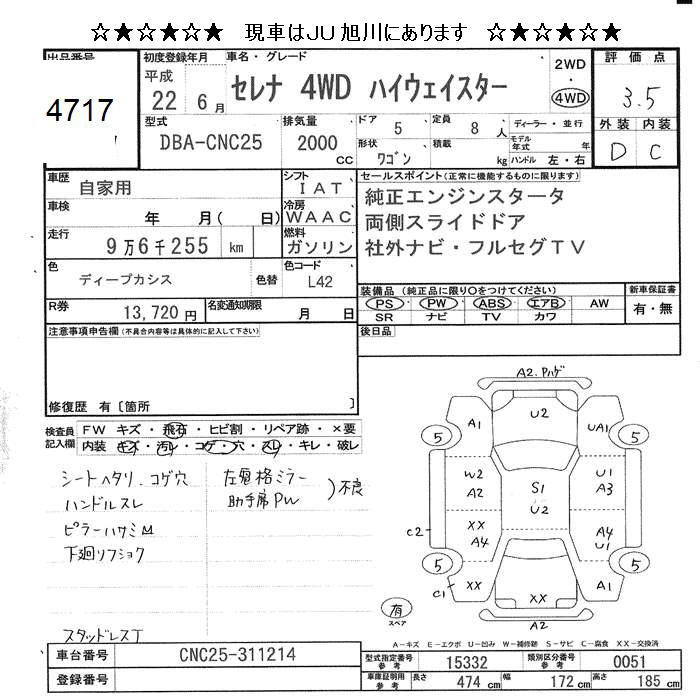 ☆★☆★☆★ 現車はJU旭川にあります ☆★☆★☆★
出品番号
4717
初度登録年月
平成
22 6月
車名・グレード
セレナ 4WD ハイウェイスター
2WD
・
4WD
評価点
3.5
外装 内装
D C
型式
DBA-CNC25
排気量
2000
CC
ドア
5
定員
8 人
形状
ワゴン
積載
kg
ディーラー・並行
モデル年式 年
ハンドル 左・右
車歴
自家用
シフト
IAT
車検
年 月( 日)
冷房
WAAC
走行
9万6千255 km
燃料
ガソリン
色
ディープカシス
色替
色コード
L42
R券
13,720円
名変通知期限
月 日
セールスポイント(正常に機能するものに限ります)
純正エンジンスタータ
両側スライドドア
社外ナビ・フルセグTV
装備品(純正品に限り○をつけてください)
PS PW ABS エアB AW
SR ナビ TV カワ
新車保証書
有・無
後日品
注意事項申告欄(不具合内容等は具体的に記入して下さい)
修復歴 有〔箇所 〕
検査員記入欄
FW キズ・飛石・ヒビ割・リペア跡・×要
内装 キズ・汚レ・コゲ・穴・スレ・キレ・破レ
シートヘタリ.コゲ穴
ハンドルスレ
ピラーハサミM
下廻リフショク
スタッドレスT
左電格ミラー
助手席PW
)不良
A2.Pハゲ
U2
A1
UA1
5
5
W2
A2
S1
U2
U1
A3
C2
XX
A4
A4
U1
5
5
C1
XX
XX
A1
A2
有
スペア
A-キズ E-エクボ U-凹み W-補修跡 S-サビ C-腐食 XX-交換済
車台番号
CNC25-311214
登録番号
型式指定番号
参考
15332
類別区分番号
参考
0051
車庫証明用
参考
長さ
474 cm
幅
172 cm
高さ
185 cm